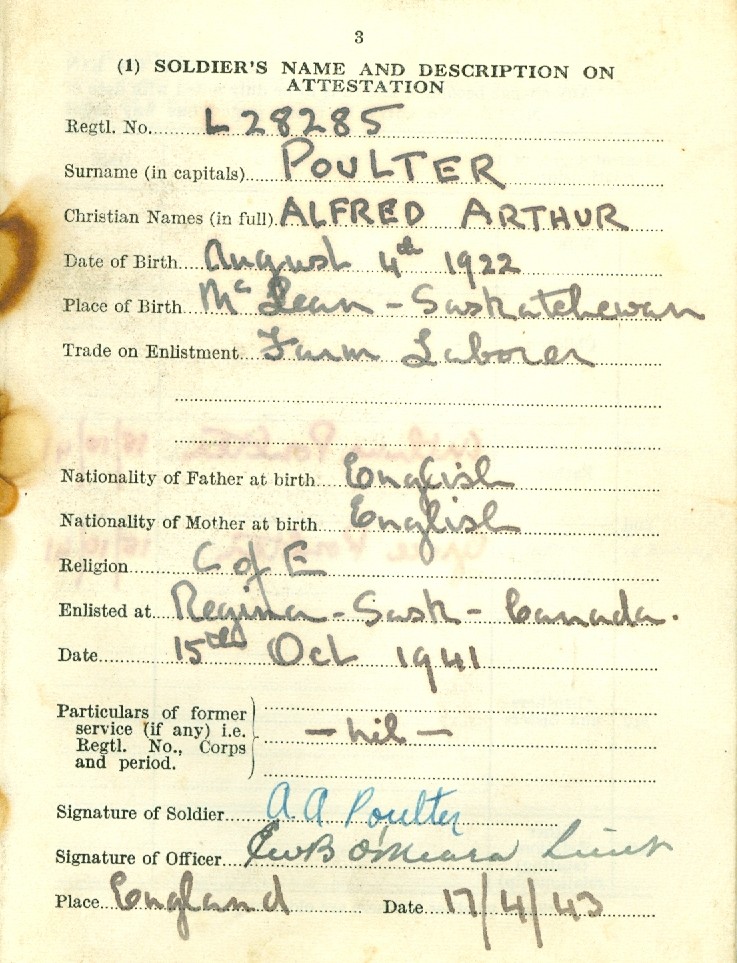 3
(1) SOLDIER'S NAME AND DESCRIPTION ON
ATTESTATION
Regtl. No. L 28285
Surname (in capitals) POULTER
Christian Names (in full) ALFRED ARTHUR
Date of Birth August 4th 1922
Place of Birth McLean - Saskatchewan
Trade on Enlistment Farm Laborer
Nationality of Father at birth English
Nationality of Mother at birth English
Religion C of E
Enlisted at Regina - Sask - Canada.
Date 15th Oct 1941
Particulars of former
service (if any) i.e.
Regtl. No., Corps
and period.
— nil —
Signature of Soldier A A Poulter
Signature of Officer O'Meara Lieut
Place England Date 17/4/43